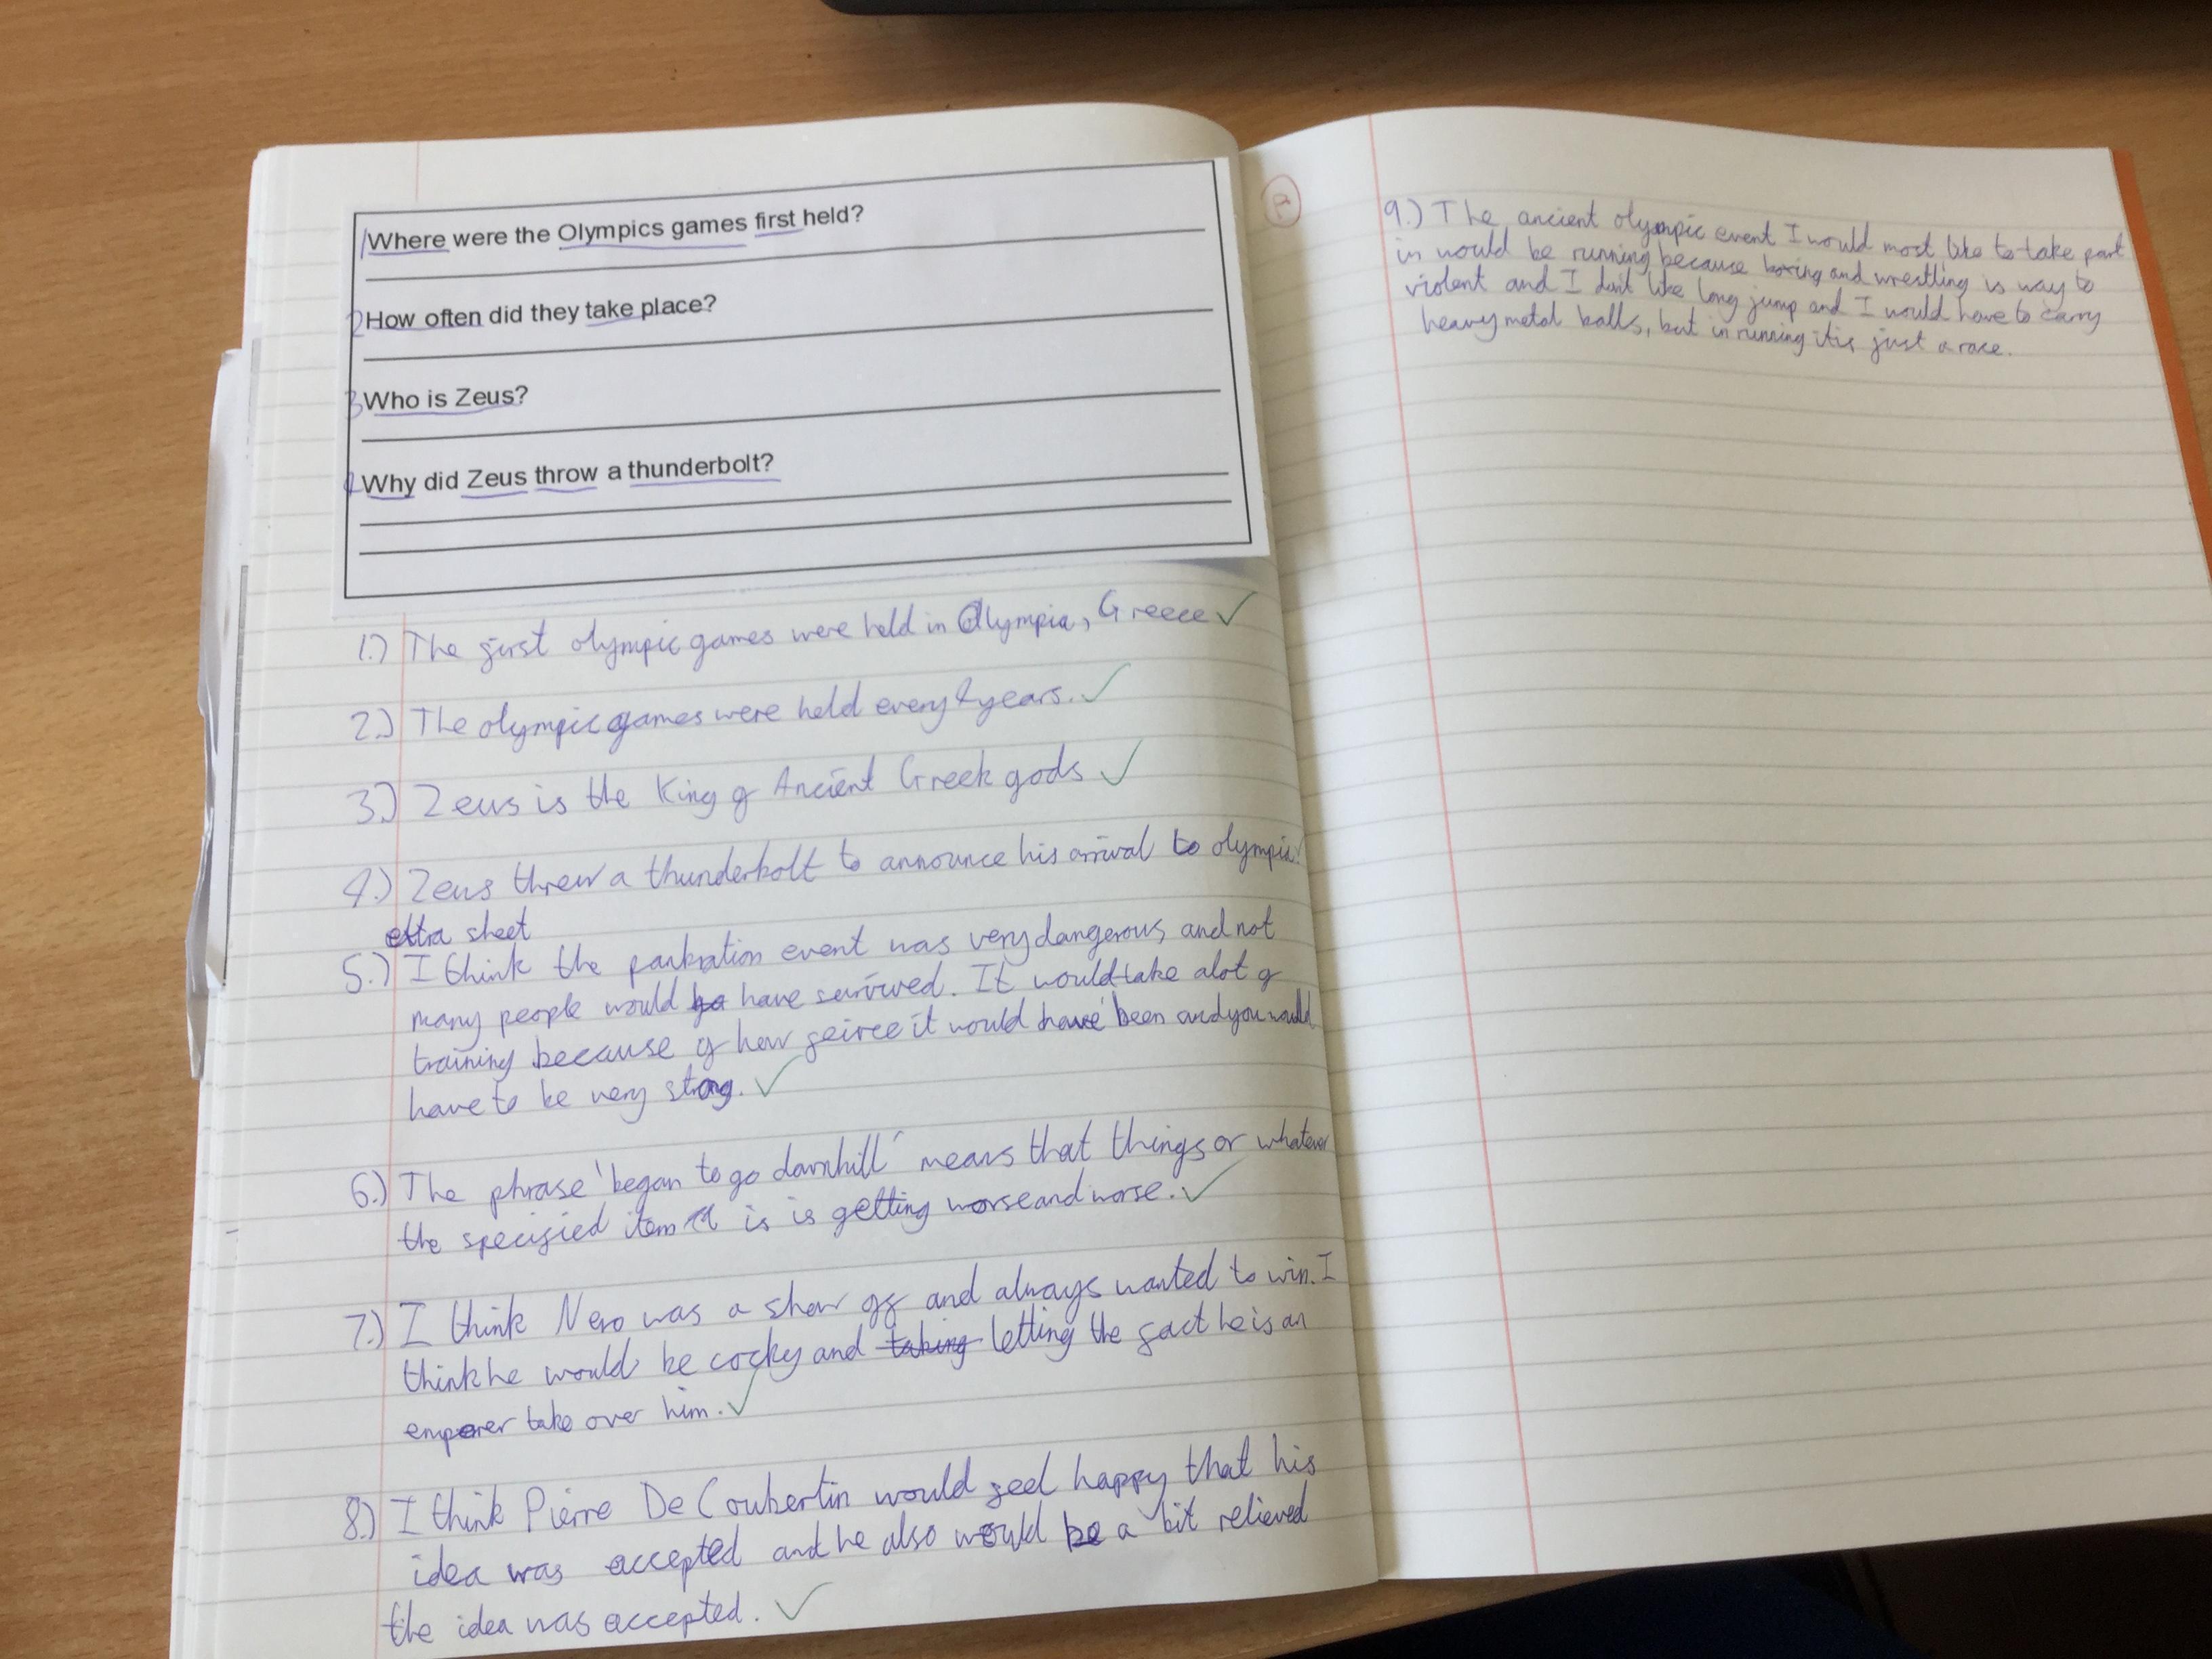 1 Where were the Olympics games first held?
2 How often did they take place?
3 Who is Zeus?
4 Why did Zeus throw a thunderbolt?
1.) The first olympic games were held in Olympia, Greece ✓
2.) The olympic games were held every 4 years. ✓
3.) Zeus is the King of Ancient Greek gods ✓
4.) Zeus threw a thunderbolt to announce his arrival to olympic
extra sheet
5.) I think the pankration event was very dangerous, and not
many people would have survived. It would take alot of
training because of how feirce it would have been and you would
have to be very strong. ✓
6.) The phrase 'began to go downhill' means that things or whatever
the specified item is is getting worse and worse. ✓
7.) I think Nero was a show off and always wanted to win. I
think he would be cocky and taking letting the fact he is an
emperer take over him. ✓
8.) I think Pierre De Coubertin would feel happy that his
idea was accepted and he also would be a bit relieved
the idea was accepted. ✓
P
9.) The ancient olympic event I would most like to take part
in would be running because boxing and wrestling is way to
violent and I don't like long jump and I would have to carry
heavy metal balls, but in running it is just a race.